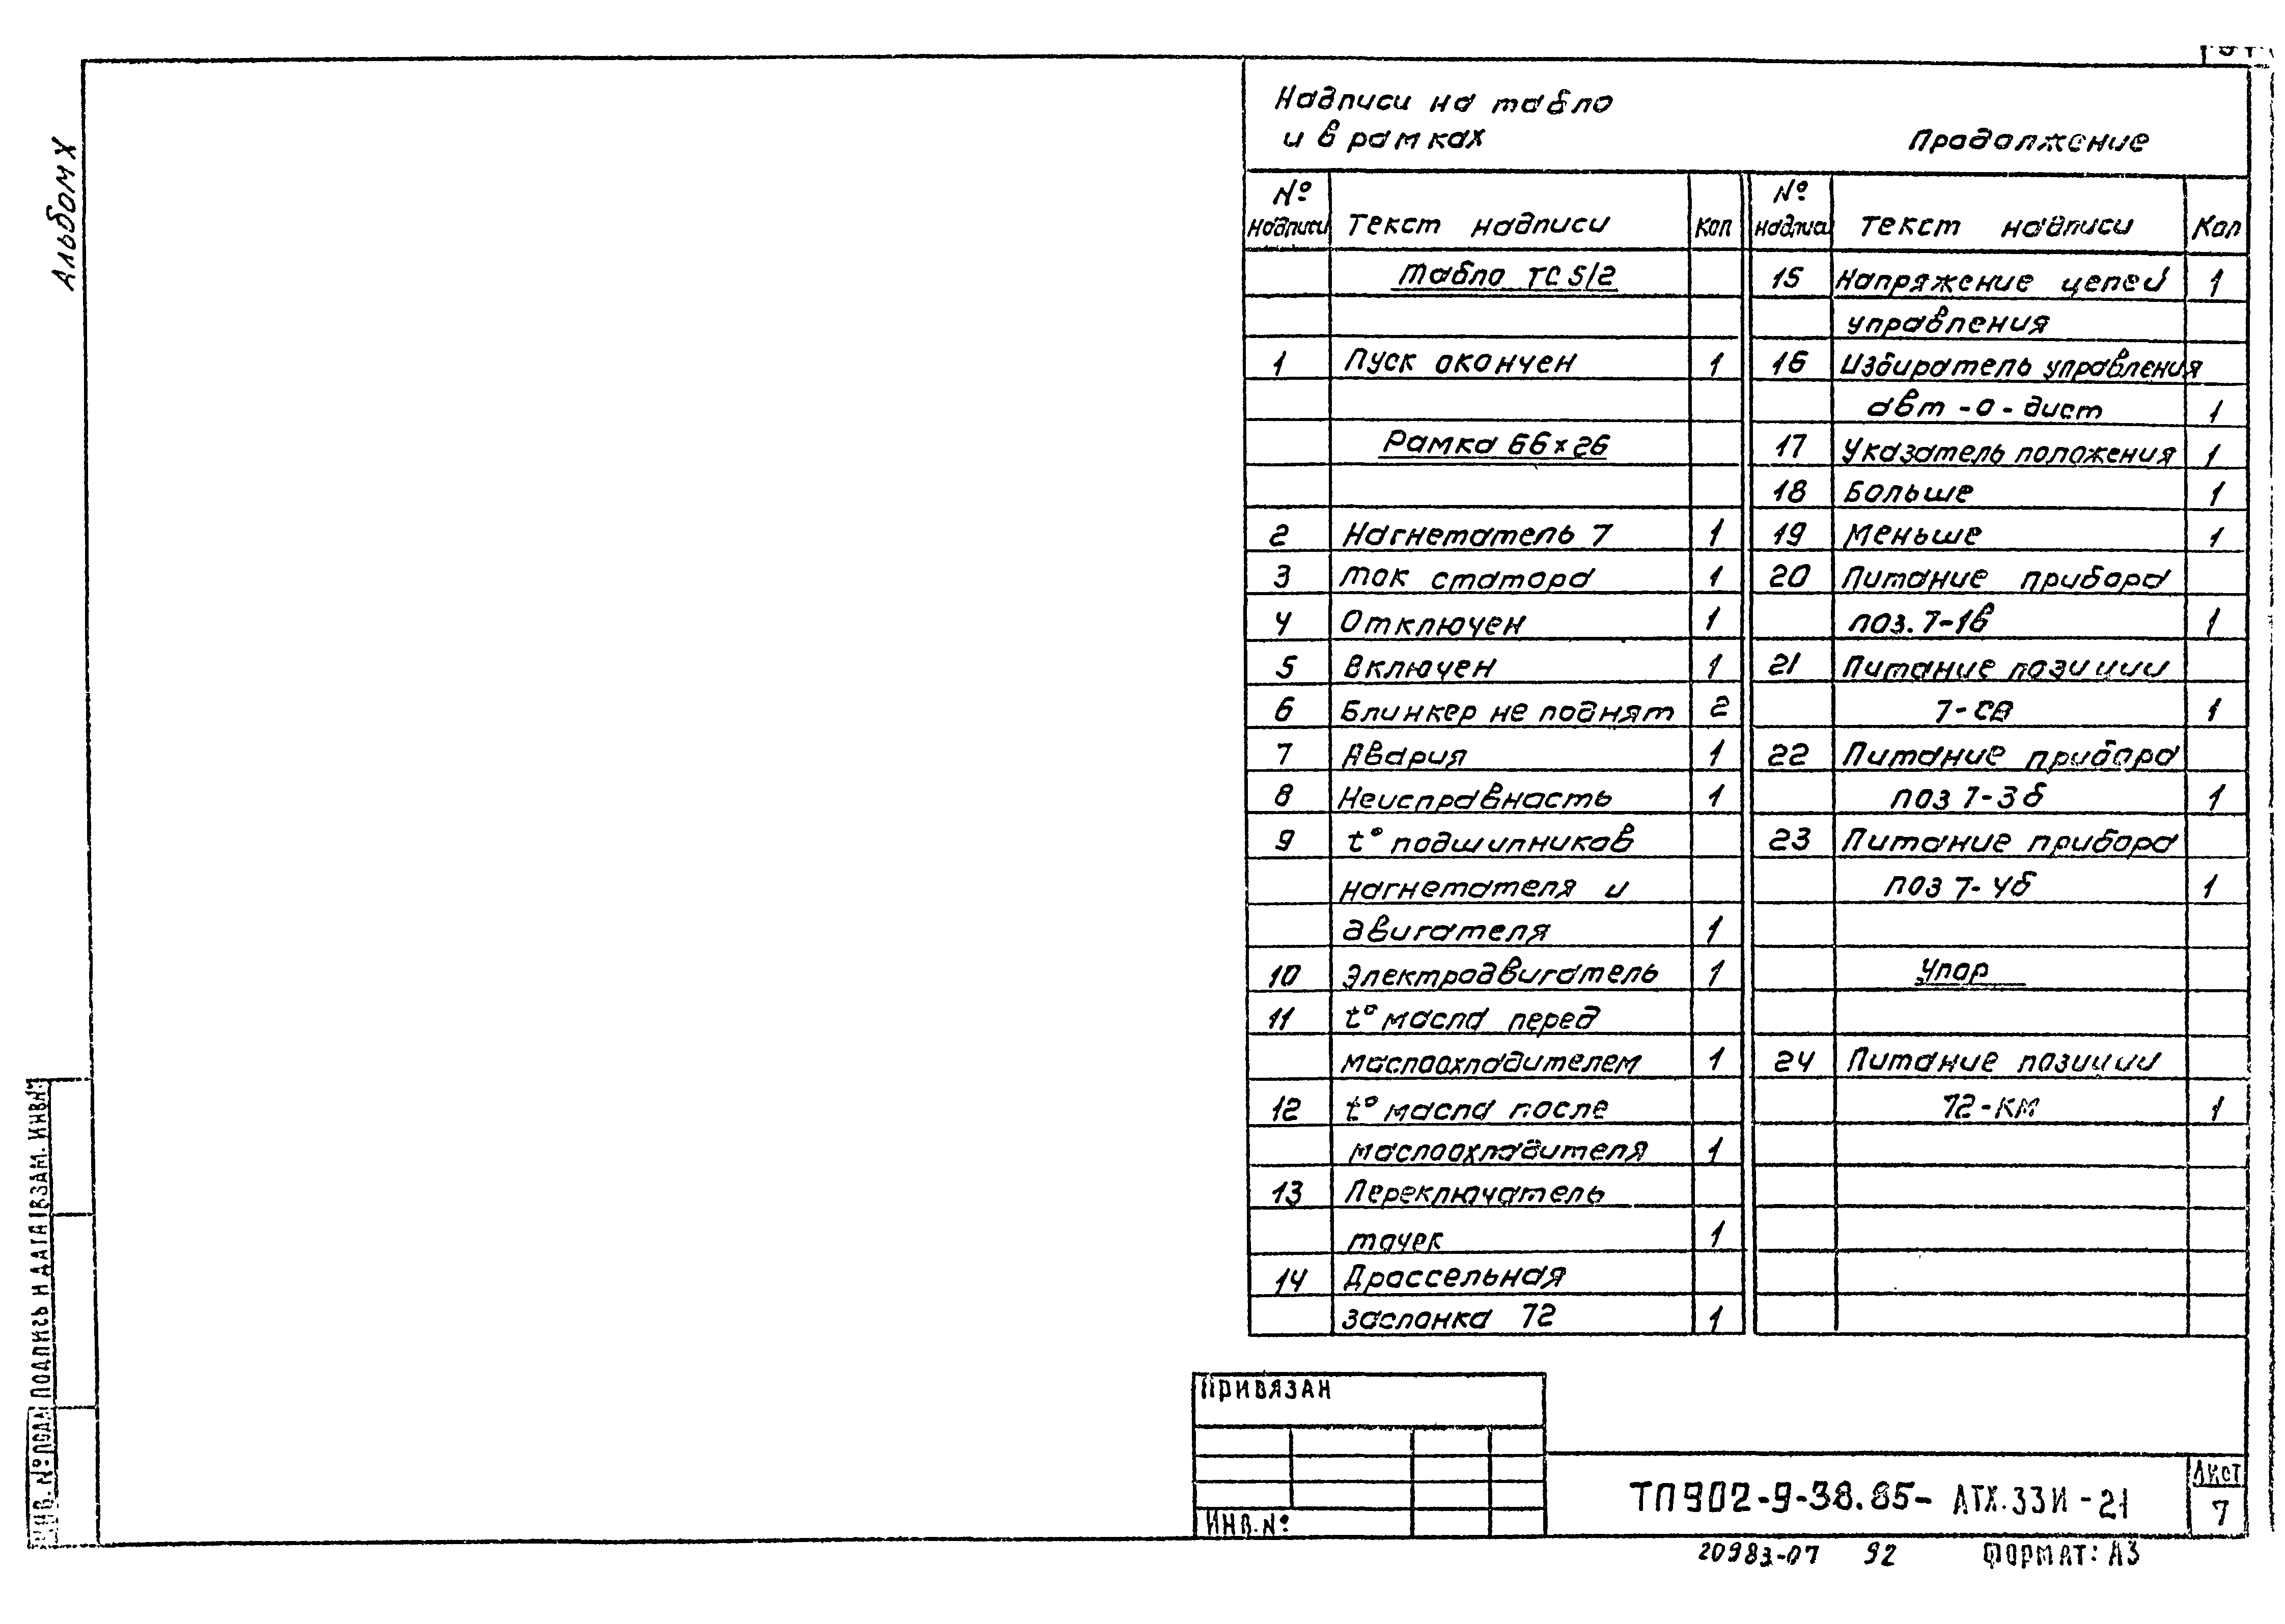 Альбом X
Надписи на табло
и в рамках
Продолжение
№ надписи Текст надписи Кол
Табло ТС 5/2
1 Пуск окончен 1
Рамка 66×26
2 Нагнетатель 7 1
3 Ток статора 1
4 Отключен 1
5 Включен 1
6 Блинкер не поднят 2
7 Авария 1
8 Неисправность 1
9 t° подшипников
нагнетателя и
двигателя 1
10 Электродвигатель 1
11 t° масла перед
маслоохладителем 1
12 t° масла после
маслоохладителя 1
13 Переключатель
точек 1
14 Дроссельная
заслонка 72 1
№ надписи Текст надписи Кол
15 Напряжение цепей 1
управления
16 Избиратель управления
авт - о - дист 1
17 Указатель положения 1
18 Больше 1
19 Меньше 1
20 Питание прибора
поз. 7-1в 1
21 Питание позиции
7-СВ 1
22 Питание прибора
поз 7-3б 1
23 Питание прибора
поз 7-4б 1
Упор
24 Питание позиции
72-КМ 1
ПРИВЯЗАН
ИНВ. №
ТП902-9-38.85- АТХ.33И -21
ЛИСТ
7
20983-07 92 ФОРМАТ: А3
ИНВ. № ПОДЛ ПОДПИСЬ И ДАТА ВЗАМ. ИНВ.№